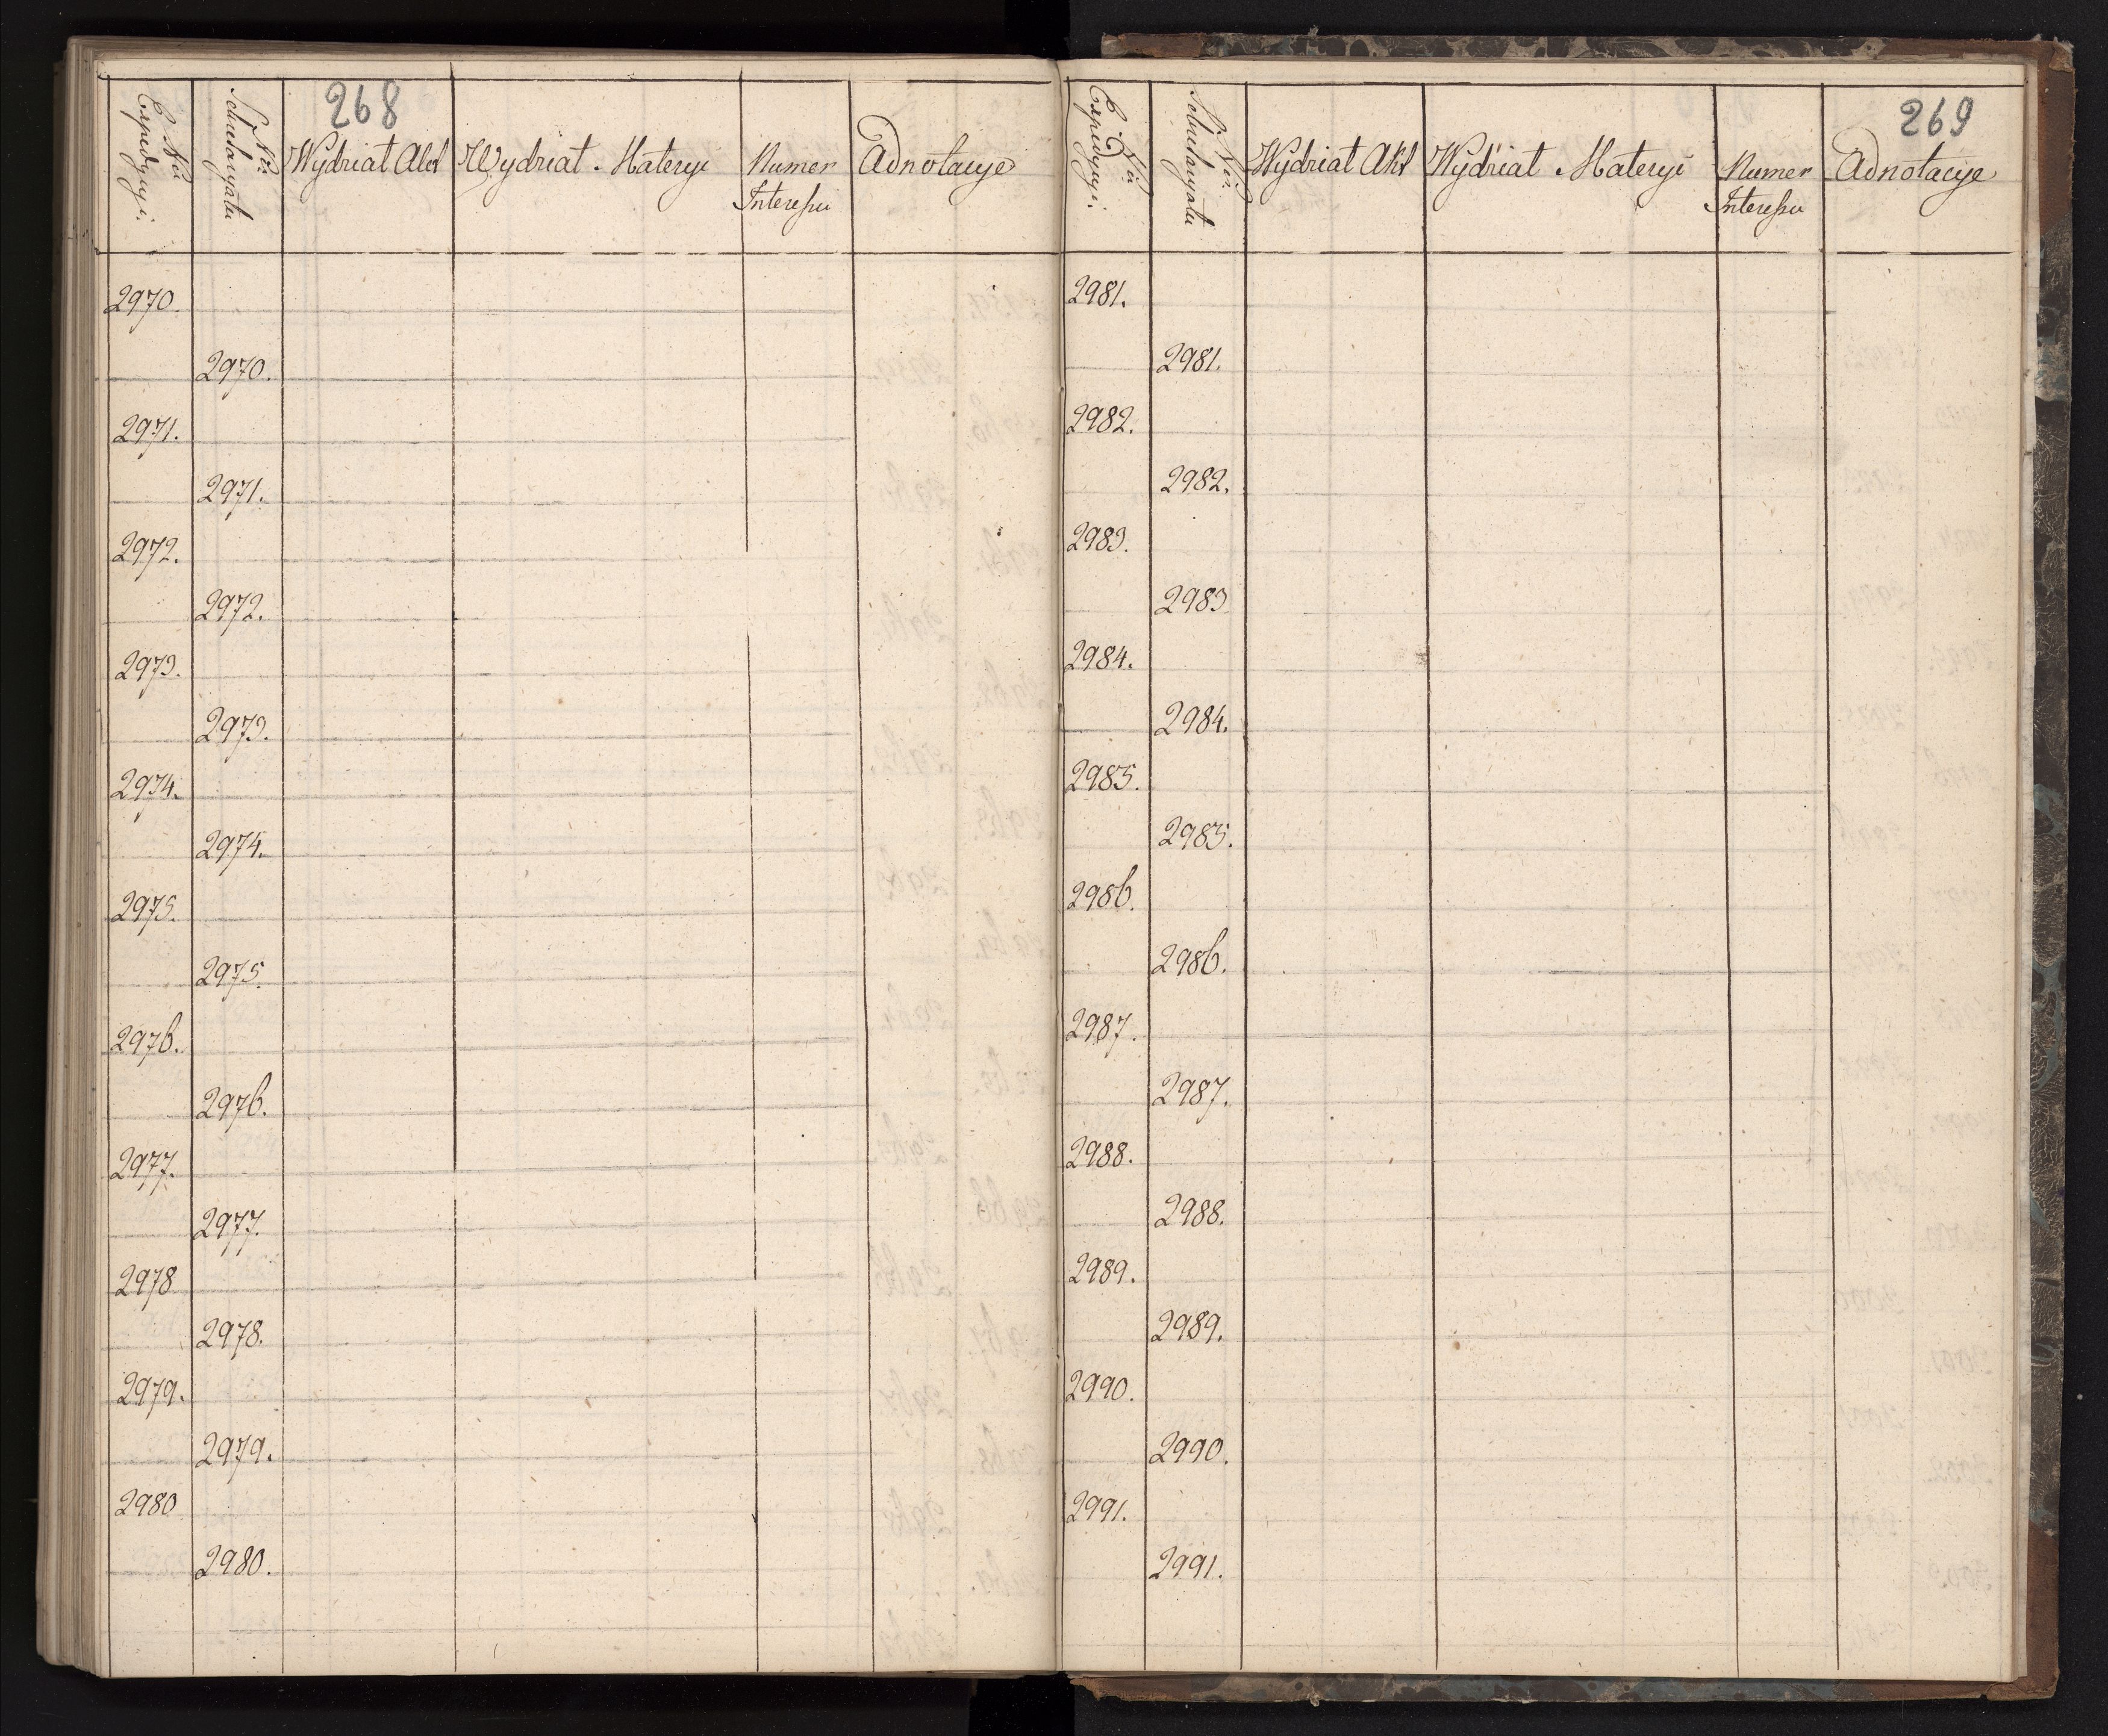 268
Nro Expedycyi.
Nro Sekretaryatu
Wydział Akt
Wydział Materyi
Numer
Interessu
Adnotacye
2970.
2970.
2971.
2971.
2972.
2972.
2973.
2973.
2974.
2974.
2975.
2975.
2976.
2976.
2977.
2977.
2978
2978.
2979.
2979.
2980
2980.
269
Nro Expedycyi.
Nro Sekretaryatu
Wydział Akt
Wydział Materyi
Numer
Interessu
Adnotacye
2981.
2981.
2982.
2982.
2983.
2983
2984.
2984.
2985.
2985.
2986.
2986.
2987.
2987.
2988.
2988.
2989.
2989.
2990.
2990.
2991.
2991.